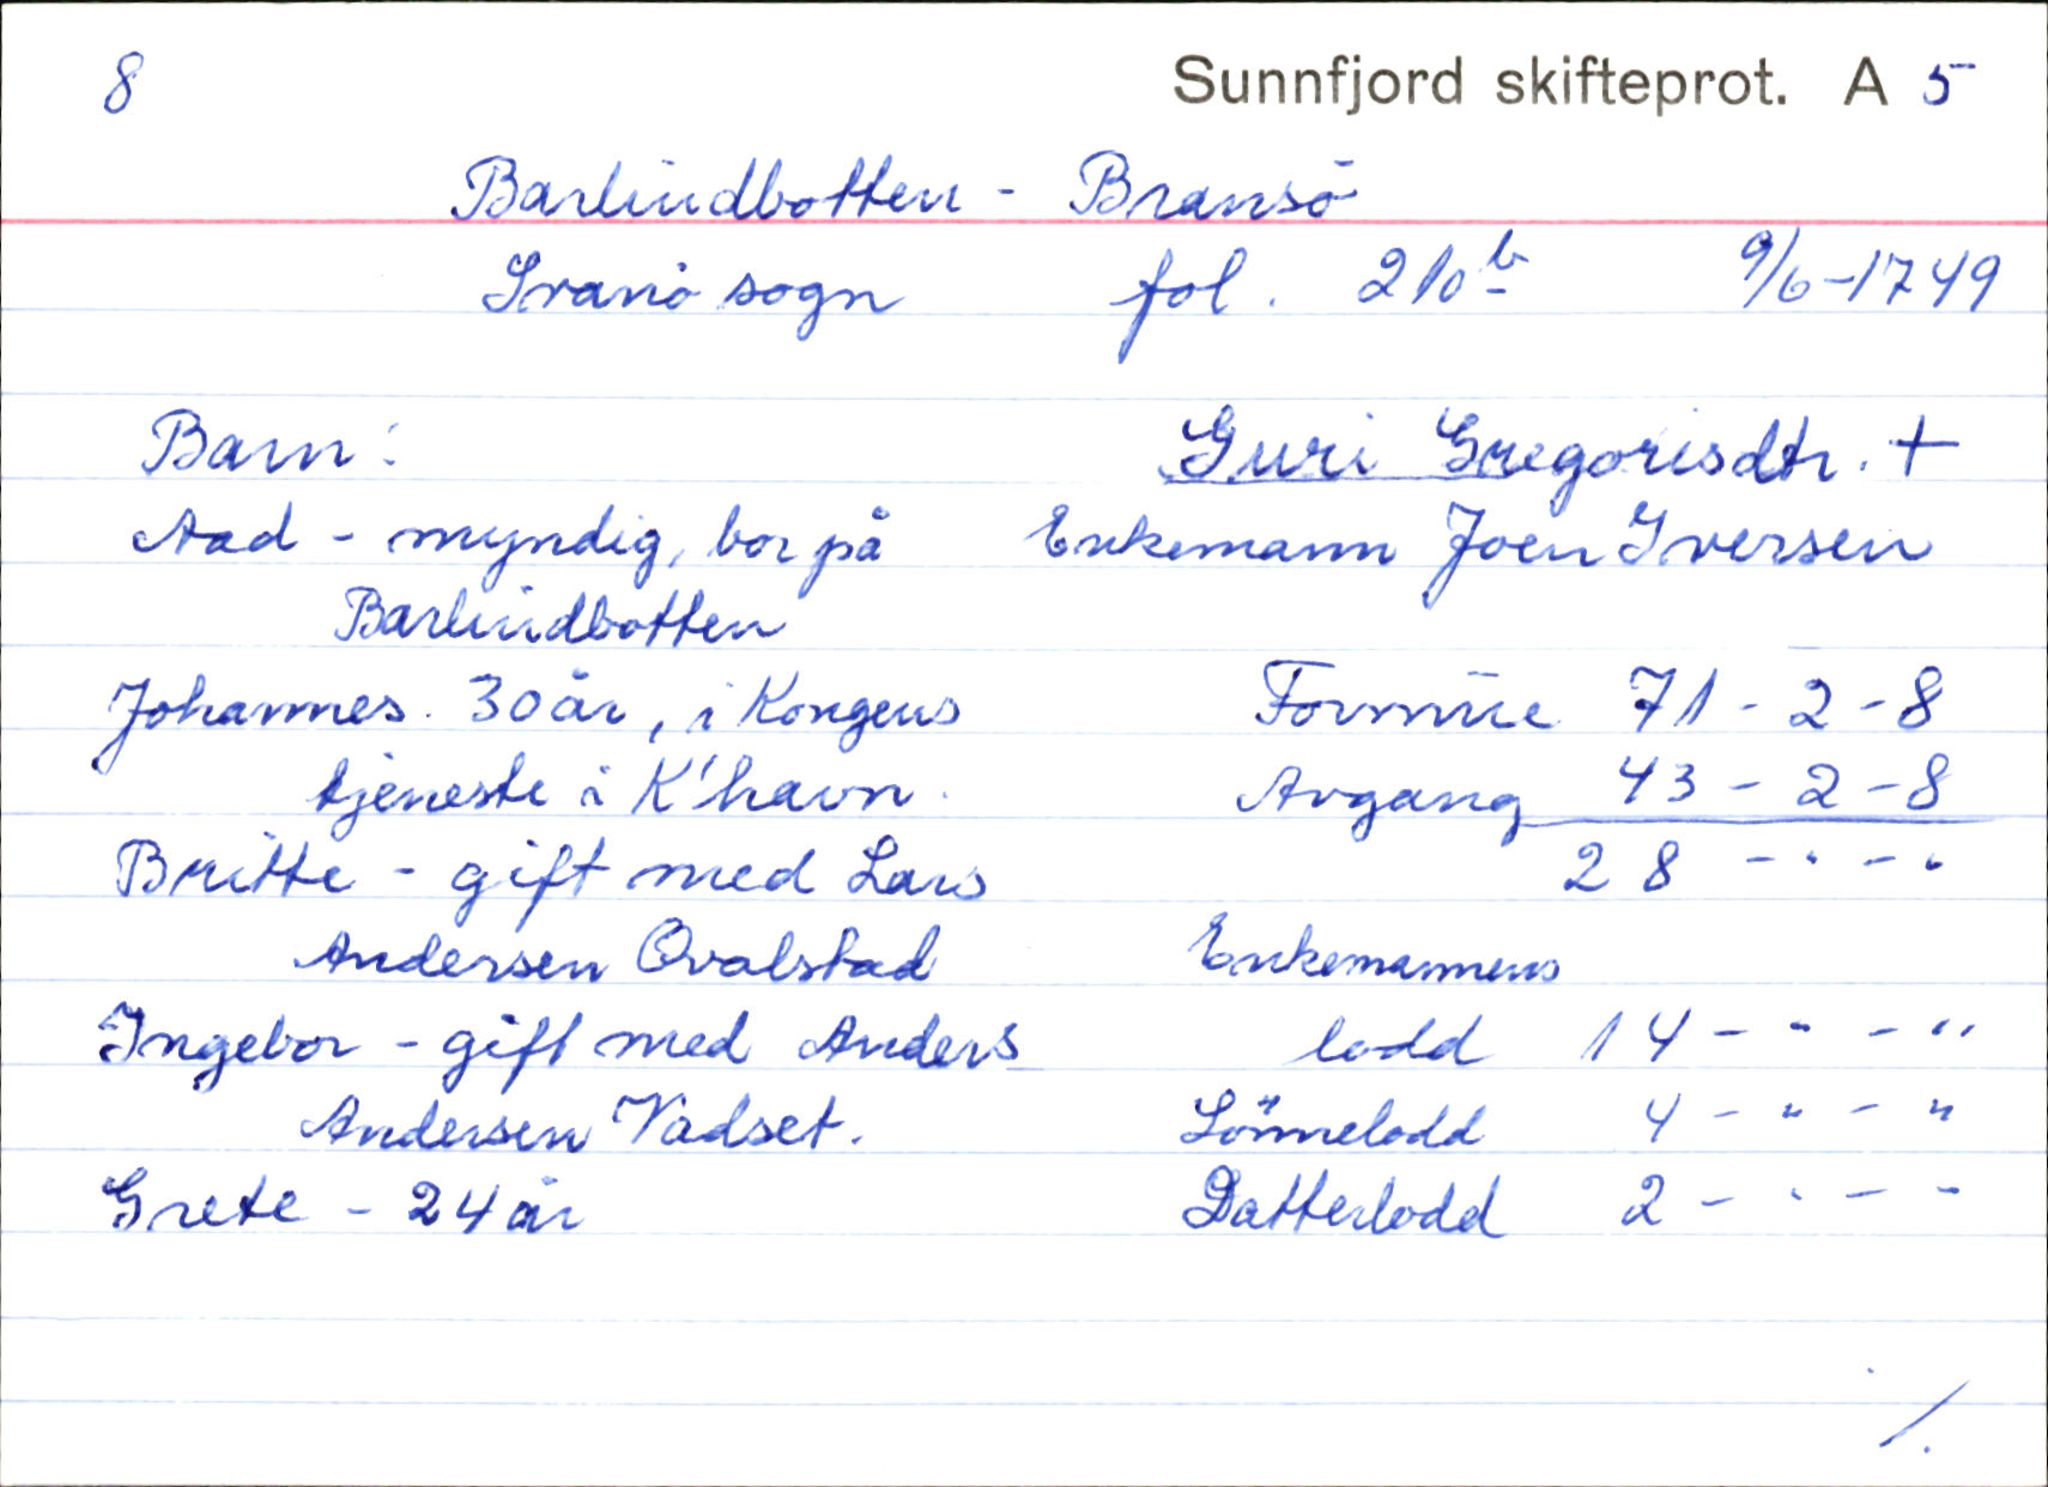 8 Sunnfjord skifteprot. A 5
Barlindbotten - Bransö
Svanö sogn fol. 210b 9/6-1749
Barn: Guri Gregorisdtr. +
Aad - myndig, bor på Enkemann Joen Iversen
Barlindbotten
Johannes. 30 år, i Kongens Formüe 71 - 2 - 8
tjeneste i K'havn. Avgang 43 - 2 - 8
Britte - gift med Lars 28 - " - "
Andersen Ovalstad Enkemannens
Ingebor - gift med Anders lodd 14 - " - "
Andersen Vadset. Sönnelodd 4 - " - "
Grete - 24 år Datterlodd 2 - " - "
/.